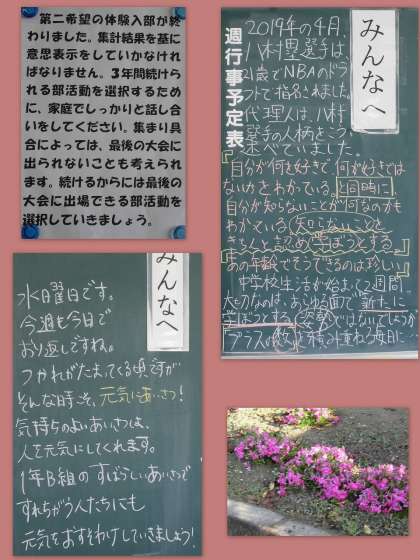 第二希望の体験入部が終
わりました。集計結果を基に
意思表示をしていかなけれ
ばなりません。3年間続けら
れる部活動を選択するため
に、家庭でしっかりと話し合
いをしてください。集まり具
合によっては、最後の大会に
出られないことも考えられ
ます。続けるからには最後の
大会に出場できる部活動を
選択していきましょう。
みんなへ
週行事予定表
2019年の4月、
八村塁選手は、
21歳でNBAのドラ
フトで指名されました。
代理人は、八村
選手の人柄をこう
述べていました。
『自分が何を好きで、何が好きでは
ないかをわかっている。と同時に、
自分が知らないことが何なのかも
わかっている。知らないことを
きちんと認め、学ぼうとする。
あの年齢でそうできるのは珍しい』
中学校生活が始まって2週間
大切なのは、あらゆる面で“新たに
学ぼうとする”姿勢ではないでしょうか
プラスの を積み重ねる毎日に
みんなへ
水曜日です。
今週も今日で
おり返しですね。
つかれがたまってくる頃ですが
そんな時こそ、元気にあいさつ!
気持ちのよいあいさつは、
人を元気にしてくれます。
1年B組のすばらしいあいさつで
すれちがう人たちにも
元気をおすそわけしていきましょう!